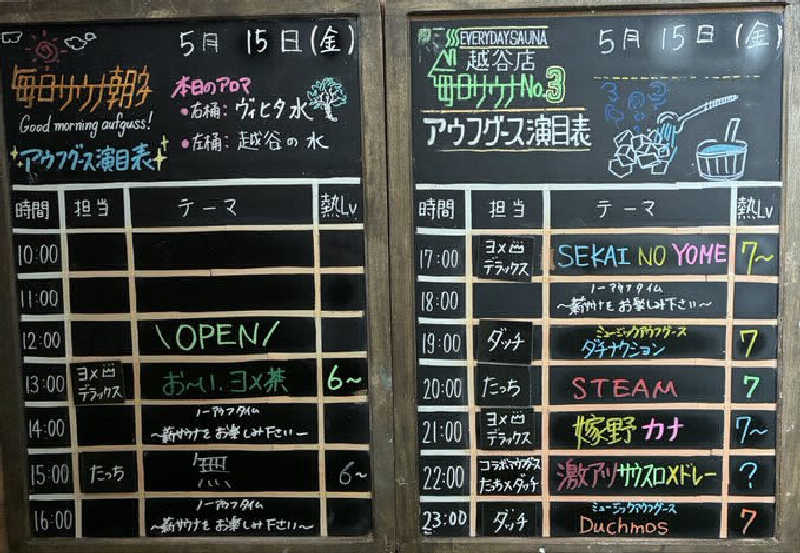 5月 15日(金)
毎日サウナ朝子
Good morning aufguss!
アウフグース演目表
本日のアロマ
・右桶：ヴィヒタ水
・左桶：越谷の水
時間 担当 テーマ 熱Lv
10:00
11:00
12:00 \OPEN/
13:00 ヨメ デラックス お〜い、ヨメ茶 6〜
14:00 ノーアウフタイム
〜薪サウナをお楽しみ下さい〜
15:00 たっち 無 6〜
16:00 ノーアウフタイム
〜薪サウナをお楽しみ下さい〜
EVERYDAY SAUNA
越谷店
毎日サウナNo.3
アウフグース演目表
5月 15日(金)
時間 担当 テーマ 熱Lv
17:00 ヨメ デラックス SEKAI NO YOME 7〜
18:00 ノーアウフタイム
〜薪サウナをお楽しみ下さい〜
19:00 ダッチ ミュージックアウフグース
ダチナクション 7
20:00 たっち STEAM 7
21:00 ヨメ デラックス 嫁野カナ 7〜
22:00 コラボアウフグース
たっち×ダッチ 激アツサウスロメドレー ?
23:00 ダッチ ミュージックアウフグース
Duchmos 7